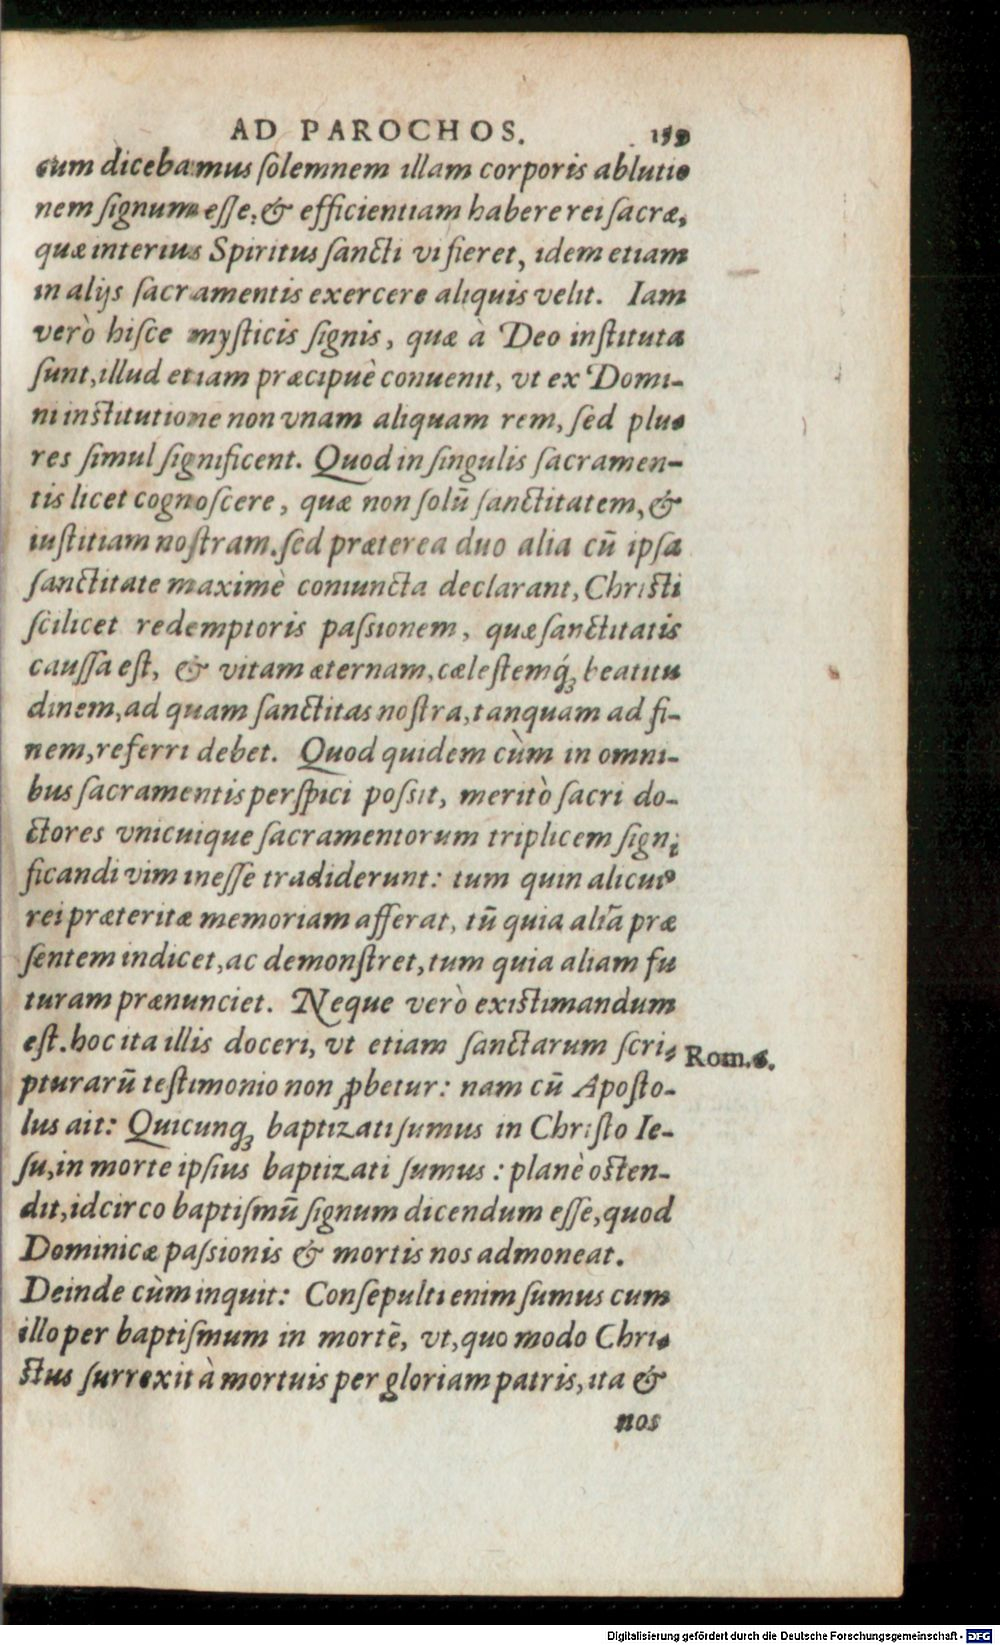 AD PAROCHOS. 159
cum dicebamus ſolemnem illam corporis ablutio
nem ſignum eſſe, & efficientiam habere rei ſacræ,
quæ interius Spiritus ſancti vi fieret, idem etiam
in alijs ſacramentis exercere aliquis velit. Iam
verò hiſce myſticis ſignis, quæ à Deo inſtituta
ſunt, illud etiam præcipuè conuenit, vt ex Domi-
ni inſtitutione non vnam aliquam rem, ſed plu-
res ſimul ſignificent. Quod in ſingulis ſacramen-
tis licet cognoſcere, quæ non ſolũ ſanctitatem, &
iuſtitiam noſtram, ſed præterea duo alia cũ ipſa
ſanctitate maximè coniuncta declarant, Chriſti
ſcilicet redemptoris paſsionem, quæ ſanctitatis
cauſſa eſt, & vitam æternam, cæleſtemq́ꝫ beatitu
dinem, ad quam ſanctitas noſtra, tanquam ad fi-
nem, referri debet. Quod quidem cùm in omni-
bus ſacramentis perſpici poſsit, meritò ſacri do-
ctores vnicuique ſacramentorum triplicem ſigni
ficandi vim ineſſe tradiderunt: tum quin alicuiꝰ
rei præteritæ memoriam afferat, tũ quia aliã præ
ſentem indicet, ac demonſtret, tum quia aliam fu
turam prænunciet. Neque verò exiſtimandum
eſt. hoc ita illis doceri, vt etiam ſanctarum ſcri-
pturarũ teſtimonio non ꝓbetur: nam cũ Apoſto-
lus ait: Quicunqꝫ baptizati ſumus in Chriſto Ie-
ſu, in morte ipſius baptizati ſumus: planè oſten-
dit, idcirco baptiſmũ ſignum dicendum eſſe, quod
Dominicæ paſsionis & mortis nos admoneat.
Deinde cùm inquit: Conſepulti enim ſumus cum
illo per baptiſmum in mortẽ, vt, quo modo Chri-
ſtus ſurrexit à mortuis per gloriam patris, ita &
nos
Rom.6.
Digitalisierung gefördert durch die Deutsche Forschungsgemeinschaft - DFG